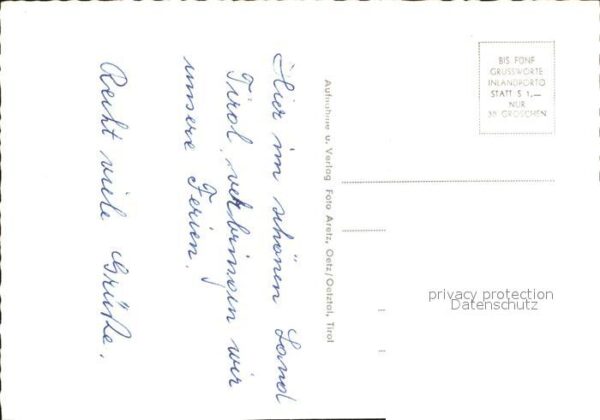 Hier im schönen Land
Tirol, verbringen wir
unsere Ferien.
Recht viele Grüße.
Aufnahme u. Verlag Foto Aretz, Oetz/Oetztal, Tirol
BIS FÜNF
GRUSSWORTE
INLANDPORTO
STATT S 1,—
NUR
30 GROSCHEN
privacy protection
Datenschutz